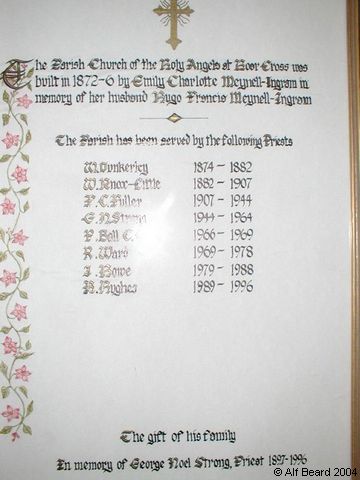 The Parish Church of the Holy Angels at Hoar Cross was
built in 1872-6 by Emily Charlotte Meynell-Ingram in
memory of her husband Hugo Francis Meynell-Ingram
The Parish has been served by the following Priests
W. Dunkerley 1874 - 1882
W. Knox-Little 1882 - 1907
P. C. 1907 - 1944
G. N. Strong 1944 - 1964
P. Ball 1966 - 1969
R. Ward 1969 - 1978
J. Howe 1979 - 1988
Hughes 1989 - 1996
The gift of his family
In memory of George Noel Strong, Priest 1897-1996
© Alf Beard 2004